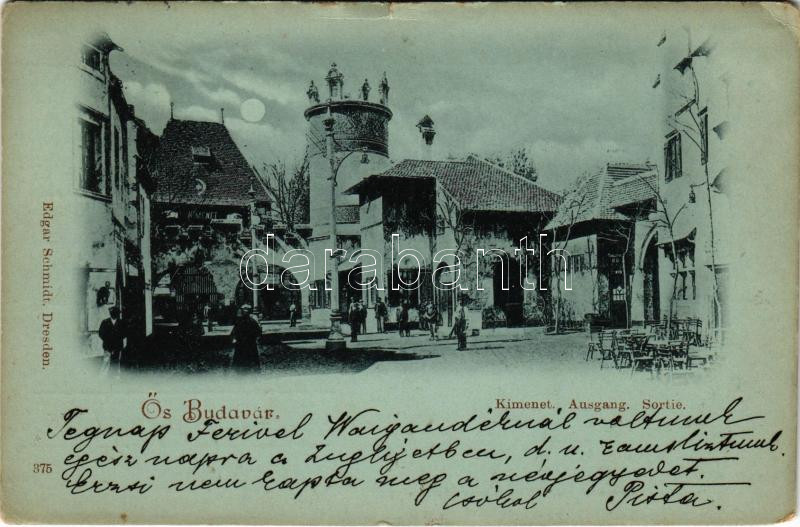 KIMENET
darabanth
Edgar Schmidt, Dresden.
Ős Budavár.
Kimenet. Ausgang. Sortie.
375
Tegnap Ferivel Waigandéknál voltunk
egész napra a Zugligetben, d. u. 
Erzsi nem kapta meg a névjegyedet.
csókol Pista.